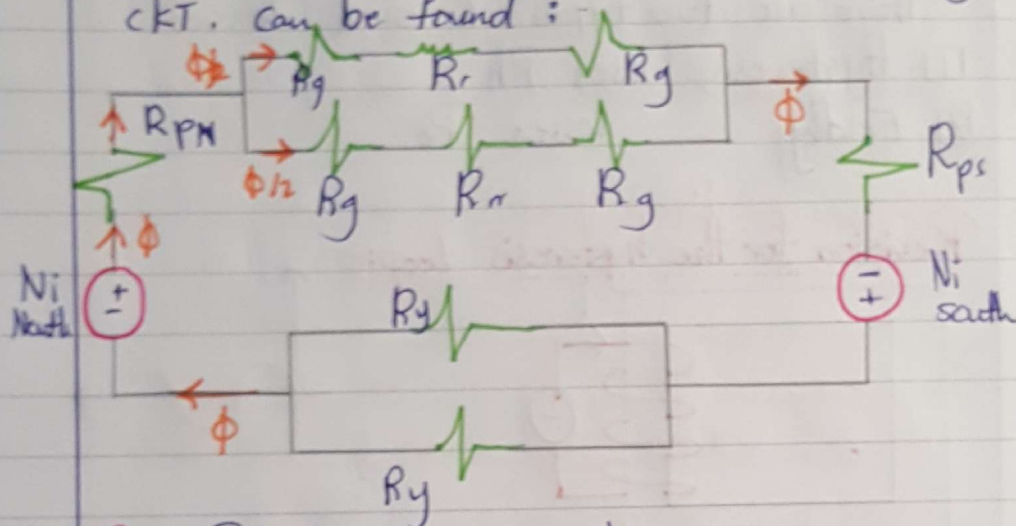 CKT. Can be found :
Rg Rr Rg
ϕ
RPN
Rps
ϕ/2
Rg Rr Rg
ϕ
Ni
North
+
-
Ry
-
+
Ni
south
ϕ
Ry